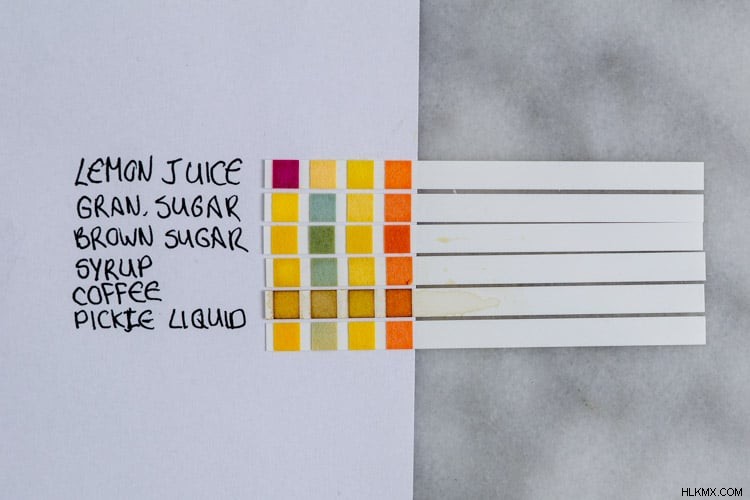 LEMON JUICE
GRAN. SUGAR
BROWN SUGAR
SYRUP
COFFEE
PICKLE LIQUID
HLKMX.COM